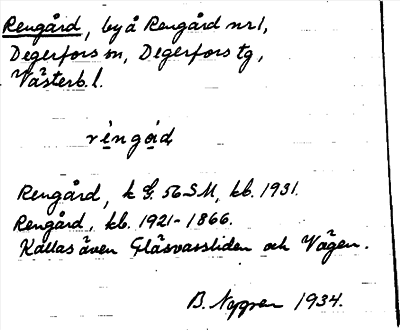 Rengård, by å Rengård nr1,
Degerfors sn, Degerfors tg,
Västerb. l.
ringad
Rengård, k G. 56 SM, kb. 1931.
Rengård, kb. 1921-1866.
Kallas även Gläsvassliden och Vägen.
B. Nygren 1934.